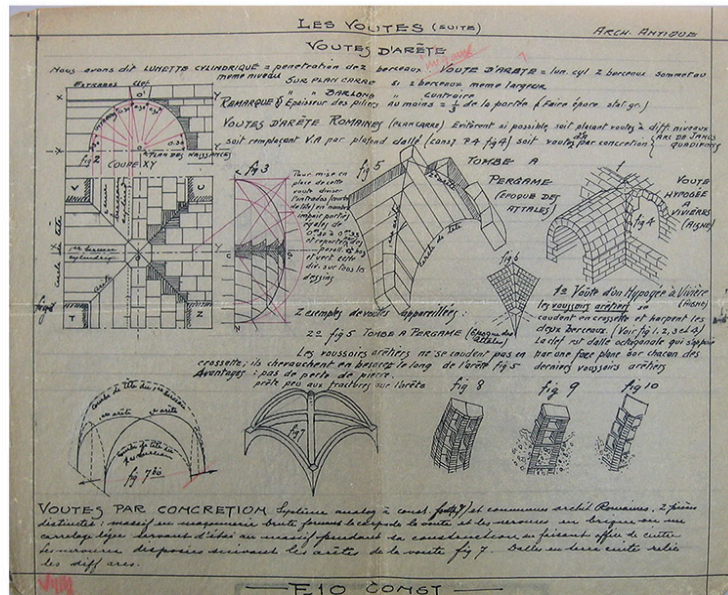 LES VOUTES (SUITE)
ARCH. ANTIQUE
VOUTES D'ARÊTE
Nous avons dit LUNETTE CYLINDRIQUE = penetration de 2 berceaux. VOUTE D'ARETE = lun. cyl 2 berceaux sommet au
meme niveau SUR PLAN CARRE si 2 berceaux meme largeur
" " BARLONG " " contraire
REMARQUE Epaisseur des piliers au moins = 1/3 de la portée (Faire épure stat gr.)
VOUTES D'ARÊTE ROMAINES (PLAN CARRÉ) Evitèrent si possible soit plaçant voutes à diff. niveaux
soit remplaçant V.A par plafond dallé (const P4 fig 4) soit voutes par concretion
ARC DE JANUS
QUADIFRONS
EXTRADOS Clef
fig 2
COUPE XY
PLAN DES NAISSANCES
fig 3
Pour mise en
place de cette
voute diviser
l'intrados (courbe
de tête) en nombre
impair parties
égales de
0m30 à 0m35
et reporter des
div. sur tous les
dessins
fig 5
TOMBE A
PERGAME
(EPOQUE DES
ATTALES)
Courbe de tête
VOUTE
HYPOGÉE
A
VIVIÈRES
(AISNE)
fig 4
fig 6
arête
T
Z
2 exemples de voutes appareillées:
1º Voute d'un Hypogée à Vivière (AISNE)
les voussoirs arêtiers se
coudent en crossette et harpent les
deux berceaux. (Voir fig 1. 2, 3 et 4)
La clef est dalle octogonale qui s'appuie
par une face plane sur chacun des
derniers voussoirs arêtiers
2º fig 5 TOMBE A PERGAME (Epoque des Attales)
Les voussoirs arêtiers ne se coudent pas en
crossette; ils chevauchent en besace le long de l'arête fig 5
Avantages: pas de perte de pierre.
prête peu aux fractures sur l'arête
fig 7bis
fig 7
fig 8
fig 9
fig 10
VOUTES PAR CONCRETION Système analog à const. fig 7 et commune archit Romaine, 2 pièces
distinctes: massif en maçonnerie brute formant le corps de la voute et les nervures en brique ou un
carrelage léger servant d'étai au massif pendant la construction en faisant office de cintre
Les nervures disposées suivant les arêtes de la voute fig 7. Dalles en terre cuite relie
les diff arcs.
E10 CONST